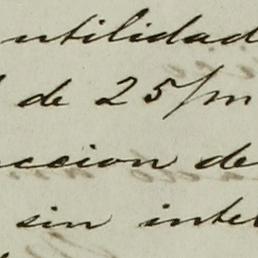 utilidad
de 25/m
ccion de
sin inte